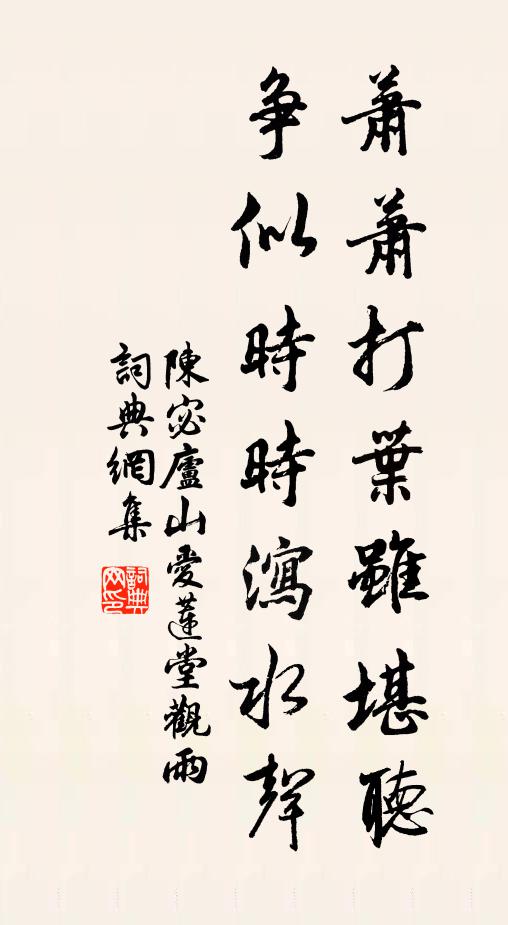 蕭蕭打葉雖堪聽
争似時時瀉水聲
陳宓廬山愛蓮堂觀雨
詞典網集
詞典
网印